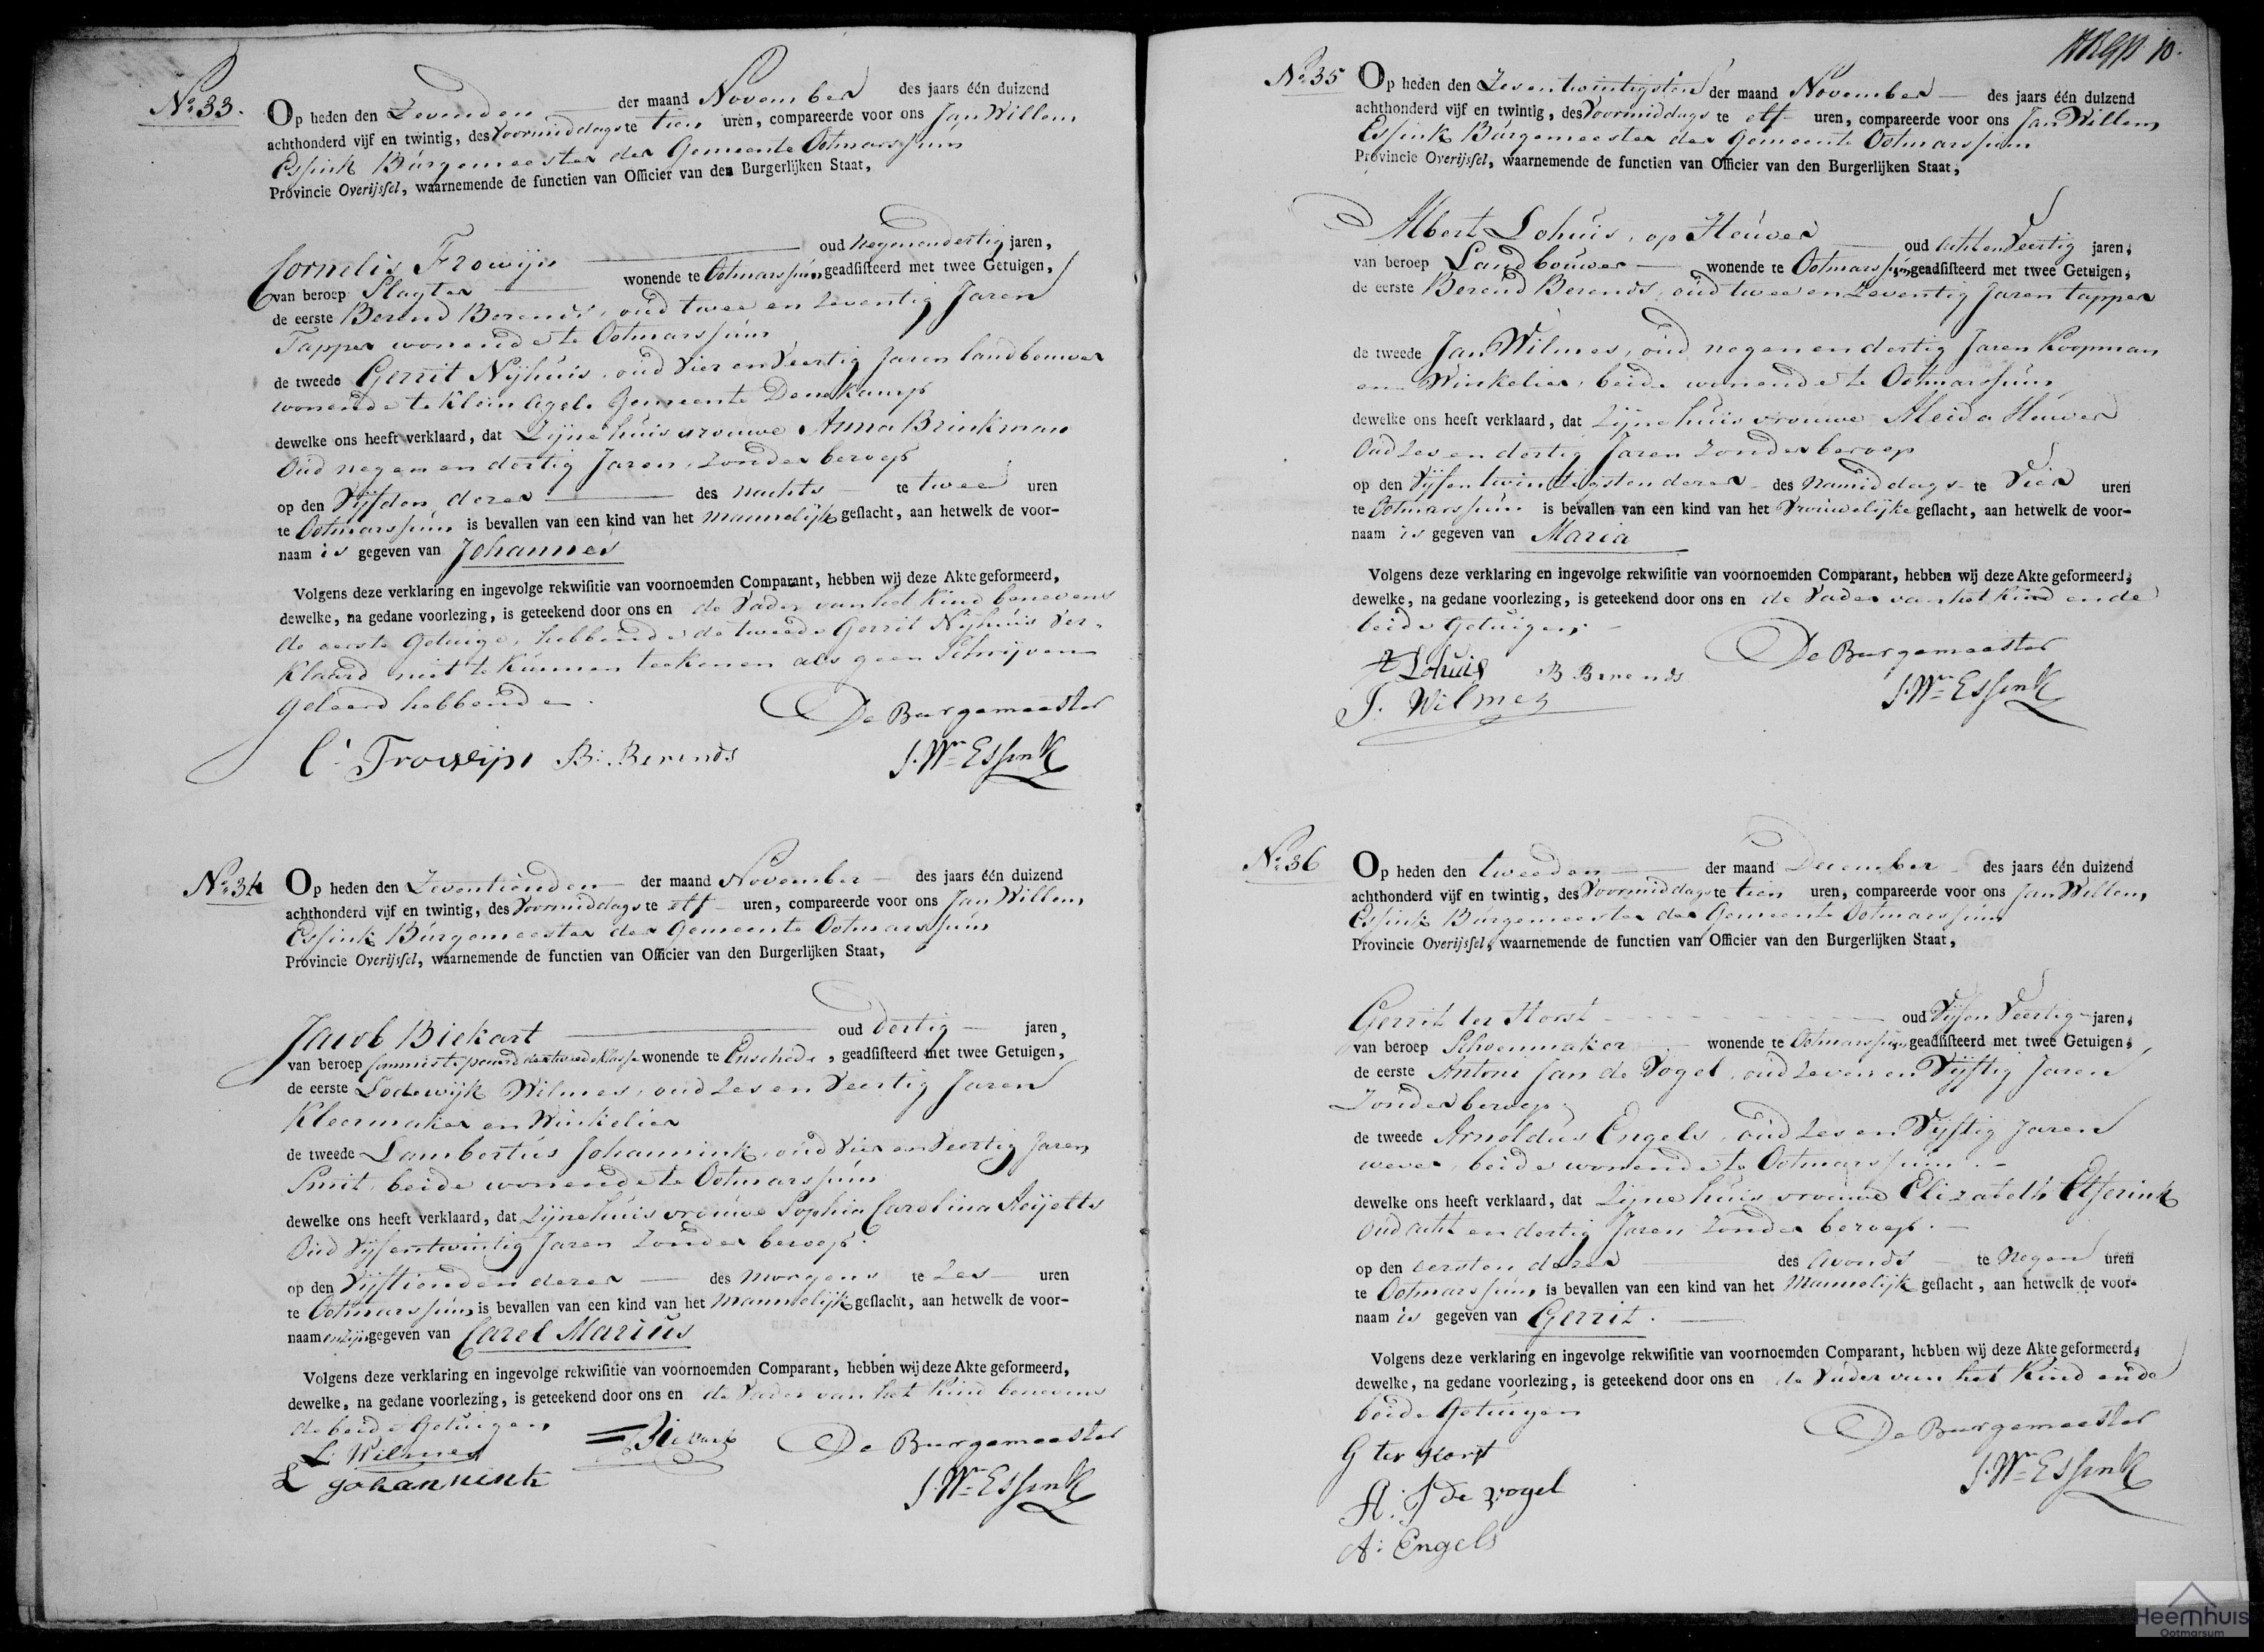 No. 33.
Op heden den Zevenden der maand November des jaars één duizend
achthonderd vijf en twintig, des Voormiddags te tien uren, compareerde voor ons Jan Willem
Essink Burgemeester der Gemeente Ootmarssum
Provincie Overijssel, waarnemende de functien van Officier van den Burgerlijken Staat,
Cornelis Frowijn oud Negenendertig jaren,
van beroep Slagter wonende te Ootmarssum geadsisteerd met twee Getuigen,
de eerste Berend Berends, oud twee en Zeventig Jaren
Tapper wonende te Ootmarssum
de tweede Gerrit Nijhuis, oud Vier en Veertig Jaren landbouwer
wonende te Klein Agele Gemeente Denekamp
dewelke ons heeft verklaard, dat Zijne huisvrouwe Anna Brinkman
Oud negen en dertig Jaren, Zonder beroep
op den Vijfden dezer des nachts te twee uren
te Ootmarssum is bevallen van een kind van het mannelijk geslacht, aan hetwelk de voor-
naam is gegeven van Johannes
Volgens deze verklaring en ingevolge rekwisitie van voornoemden Comparant, hebben wij deze Akte geformeerd,
dewelke, na gedane voorlezing, is geteekend door ons en de Vader van het Kind benevens
de eerste Getuige, hebbende de tweede Gerrit Nijhuis Ver-
klaard niet te Kunnen teekenen als geen Schrijven
geleerd hebbende.
De Burgemeester
C. Frowijn B. Berends J. Wm Essink
No. 34
Op heden den Zeventienden der maand November des jaars één duizend
achthonderd vijf en twintig, des Voormiddags te elf uren, compareerde voor ons Jan Willem
Essink Burgemeester der Gemeente Ootmarssum
Provincie Overijssel, waarnemende de functien van Officier van den Burgerlijken Staat,
Jacob Biekart oud dertig jaren,
van beroep der tweede Klasse wonende te Enschede, geadsisteerd met twee Getuigen,
de eerste Lodewijk Wilmes, oud Zes en Veertig Jaren
Kleermaker en Winkelier
de tweede Lambertus Johannink, oud Vier en Veertig Jaren
Smit, beide wonende te Ootmarssum
dewelke ons heeft verklaard, dat Zijne huisvrouwe Sophia Carolina
Oud Vijfentwintig Jaren Zonder beroep.
op den Vijftienden dezer des morgens te Zes uren
te Ootmarssum is bevallen van een kind van het Mannelijk geslacht, aan hetwelk de voor-
naamen zijn gegeven van Carel Marius
Volgens deze verklaring en ingevolge rekwisitie van voornoemden Comparant, hebben wij deze Akte geformeerd,
dewelke, na gedane voorlezing, is geteekend door ons en de Vader van het Kind benevens
de beide Getuigen
L. Wilmes Biekart De Burgemeester
L Johannink J. Wm Essink
10.
No. 35
Op heden den Zesentwintigsten der maand November des jaars één duizend
achthonderd vijf en twintig, des Voormiddags te elf uren, compareerde voor ons Jan Willem
Essink Burgemeester der Gemeente Ootmarssum
Provincie Overijssel, waarnemende de functien van Officier van den Burgerlijken Staat,
Albert Lohuis, op Heuver oud achtenVeertig jaren,
van beroep Landbouwer wonende te Ootmarssum geadsisteerd met twee Getuigen,
de eerste Berend Berends, oud twee en Zeventig Jaren tapper
de tweede Jan Wilmes, oud negen en dertig Jaren Koopman
en Winkelier, beide wonende te Ootmarssum
dewelke ons heeft verklaard, dat Zijne huisvrouwe Aleida Heuver
Oud Zes en dertig Jaren Zonder beroep
op den Vijfentwintigsten dezer des namiddags te Vier uren
te Ootmarssum is bevallen van een kind van het Vrouwelijke geslacht, aan hetwelk de voor-
naam is gegeven van Maria
Volgens deze verklaring en ingevolge rekwisitie van voornoemden Comparant, hebben wij deze Akte geformeerd,
dewelke, na gedane voorlezing, is geteekend door ons en de Vader van het Kind en de
beide Getuigen,
De Burgemeester
A Lohuis B Berends
J. Wilmes J. Wm Essink
No. 36
Op heden den tweeden der maand December des jaars één duizend
achthonderd vijf en twintig, des Voormiddags te tien uren, compareerde voor ons Jan Willem
Essink Burgemeester der Gemeente Ootmarssum
Provincie Overijssel, waarnemende de functien van Officier van den Burgerlijken Staat,
Gerrit ter Horst oud Vijfen Veertig jaren,
van beroep Schoenmaker wonende te Ootmarssum geadsisteerd met twee Getuigen,
de eerste Antoni Jan de Vogel, oud Zeven en Vijftig Jaren
Zonder beroep
de tweede Arnoldus Engels, oud Zes en Vijftig Jaren
wever, beide wonende te Ootmarssum.
dewelke ons heeft verklaard, dat Zijne huisvrouwe Elizabeth Elferink
Oud acht en dertig Jaren Zonder beroep.
op den eersten dezer des avonds te Negen uren
te Ootmarssum is bevallen van een kind van het Mannelijk geslacht, aan hetwelk de voor-
naam is gegeven van Gerrit.
Volgens deze verklaring en ingevolge rekwisitie van voornoemden Comparant, hebben wij deze Akte geformeerd,
dewelke, na gedane voorlezing, is geteekend door ons en de Vader van het Kind en de
beide Getuigen
De Burgemeester
G ter Horst
J. Wm Essink
A. J de Vogel
A: Engels
Heemhuis
Ootmarsum